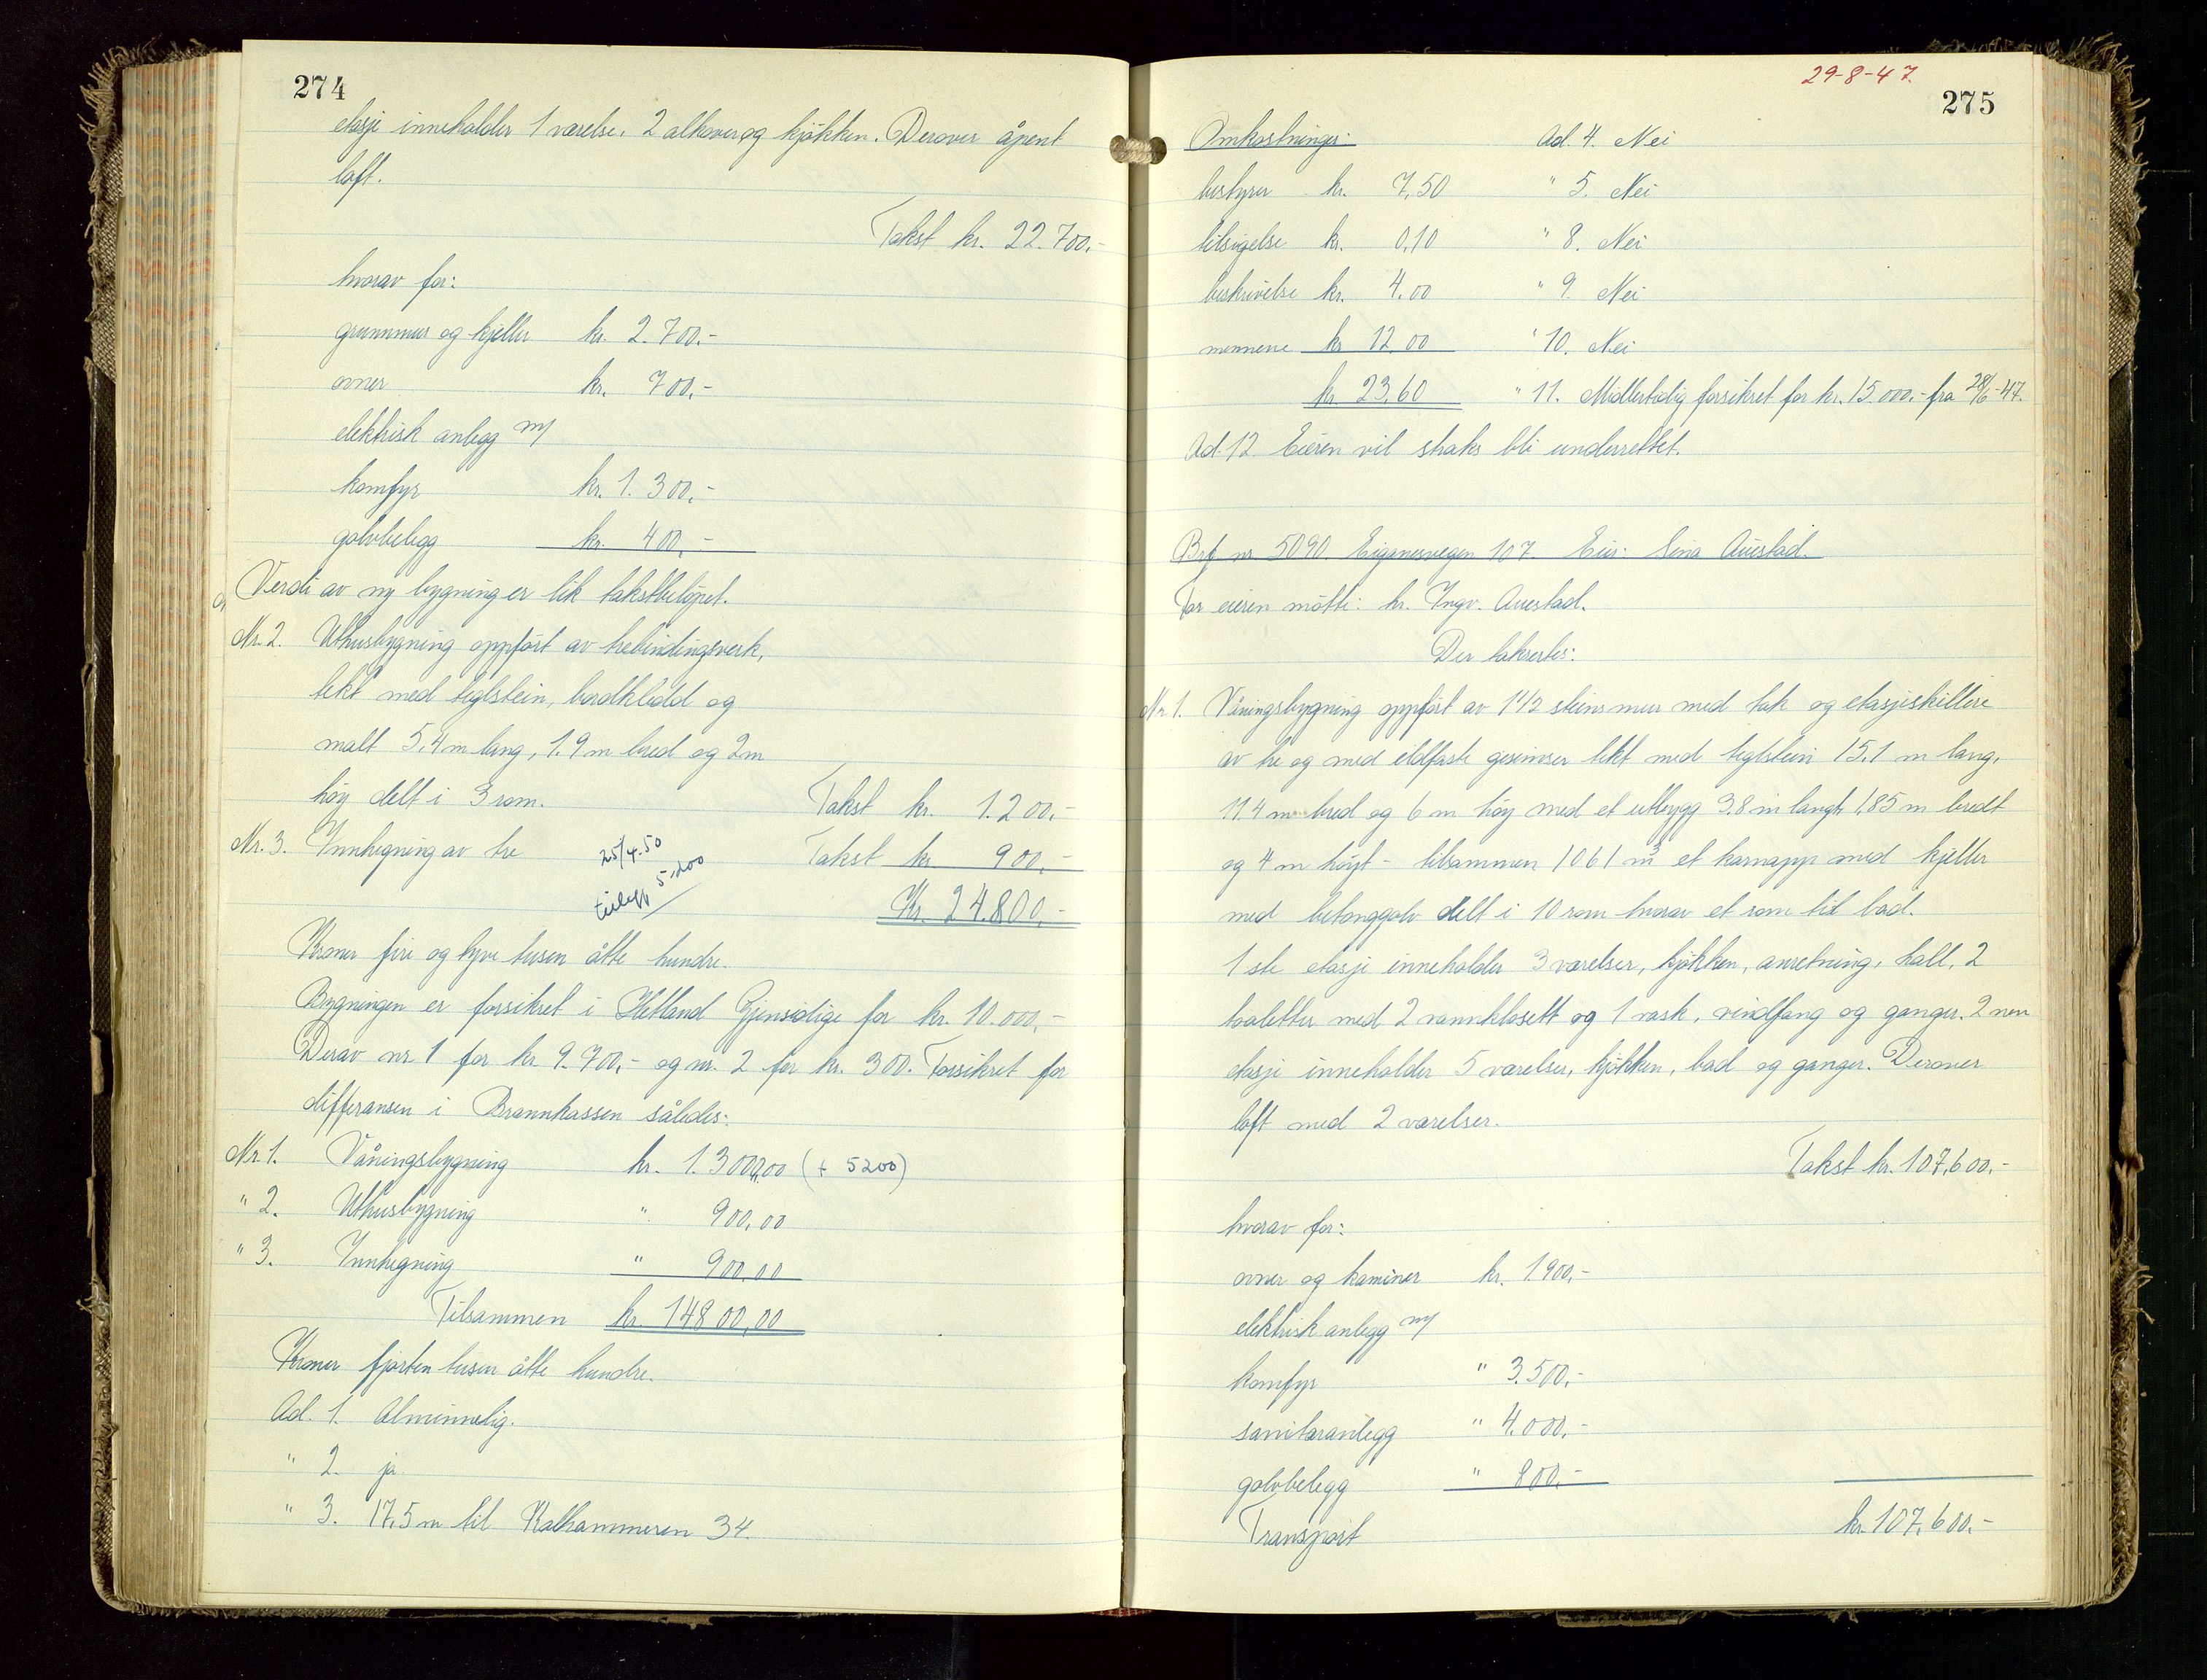 274
etasje inneholder 1 værelse, 2 alkover og kjökken. Derover åpent
loft.
Takst kr. 22.700,-
hvorav for:
grunnmur og kjeller kr. 2.700,-
ovner kr. 700,-
elektrisk anlegg m/
komfyr kr. 1.300,-
golvbelegg kr. 400,-
Verdi av ny bygning er lik takstbelöpet.
Nr. 2. Uthusbygning oppfört av trebindingsverk,
tekt med teglstein, bordkledd og
malt 5,4 m lang, 1.9 m bred og 2 m
höy delt i 3 rom. Takst kr. 1.200,-
Nr. 3. Innhegning av tre Takst kr 900,-
25/4.50
tillegg 5,200
Kr. 24.800,-
Kroner fire og tyve tusen åtte hundre.
Bygningen er forsikret i Hetland Gjensidige for kr. 10.000,-
Derav nr 1 for kr 9.700,- og nr. 2 for kr. 300. Forsikret for
differansen i Brannkassen således:
Nr 1. Våningsbygning kr. 13000,00 (+ 5200)
" 2. Uthusbygning " 900,00
" 3. Innhegning " 900,00
Tilsammen kr. 14800,00
Kroner fjorten tusen åtte hundre.
Ad. 1. Alminnelig.
" 2. ja.
" 3. 17,5 m til Kalhammeren 34.
29-8-47.
275
Omkostninger: Ad. 4. Nei
bestyrer kr. 7,50 " 5. Nei
tilsigelse kr. 0,10 " 8. Nei
beskrivelse kr. 4.00 " 9. Nei
mennene kr 12.00 " 10. Nei
kr. 23,60 " 11. Midlertidig forsikret for kr. 15.000,- fra 28/6-47.
Ad. 12 Eieren vil straks bli underrettet.
Brf nr 5090 Eiganesvegen 107 Eier: Sina Austad.
For eieren mötte: hr. Ingv. Austad.
Der taksertes:
Nr. 1. Våningsbygning oppfört av 1 1/2 steins mur med tak og etasjeskillere
av tre og med ildfaste gesimser tekt med teglstein 15.1 m lang,
11.4 m bred og 6 m höy med et utbygg 3.8 m langt, 1,85 m bredt
og 4 m höyt - tilsammen 1061 m³ et karnapp med kjeller
med betonggolv delt i 10 rom hvorav et rom til bad.
1 ste etasje inneholder 3 værelser, kjökken, anretning, hall, 2
toaletter med 2 vannklosett og 1 vask, vindfang og ganger. 2 nen
etasje inneholder 5 værelser, kjökken, bad og ganger. Derover
loft med 2 værelser.
Takst kr. 107.600,-
hvorav for:
ovner og kaminer kr. 1.900,-
elektrisk anlegg m/
komfyr " 3.500,-
sanitæranlegg " 4.000,-
golvbelegg " 800,-
Transport kr. 107.600,-